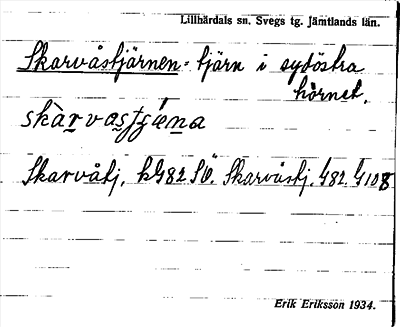 Lillhärdals sn. Svegs tg. Jämtlands län.
Skarvåstjärnen = tjärn i sydöstra
hörnet.
skàrvastjæ̀na
Skarvåtj. k G82 SV. Skarvåstj. G82. G108
Erik Eriksson 1934.